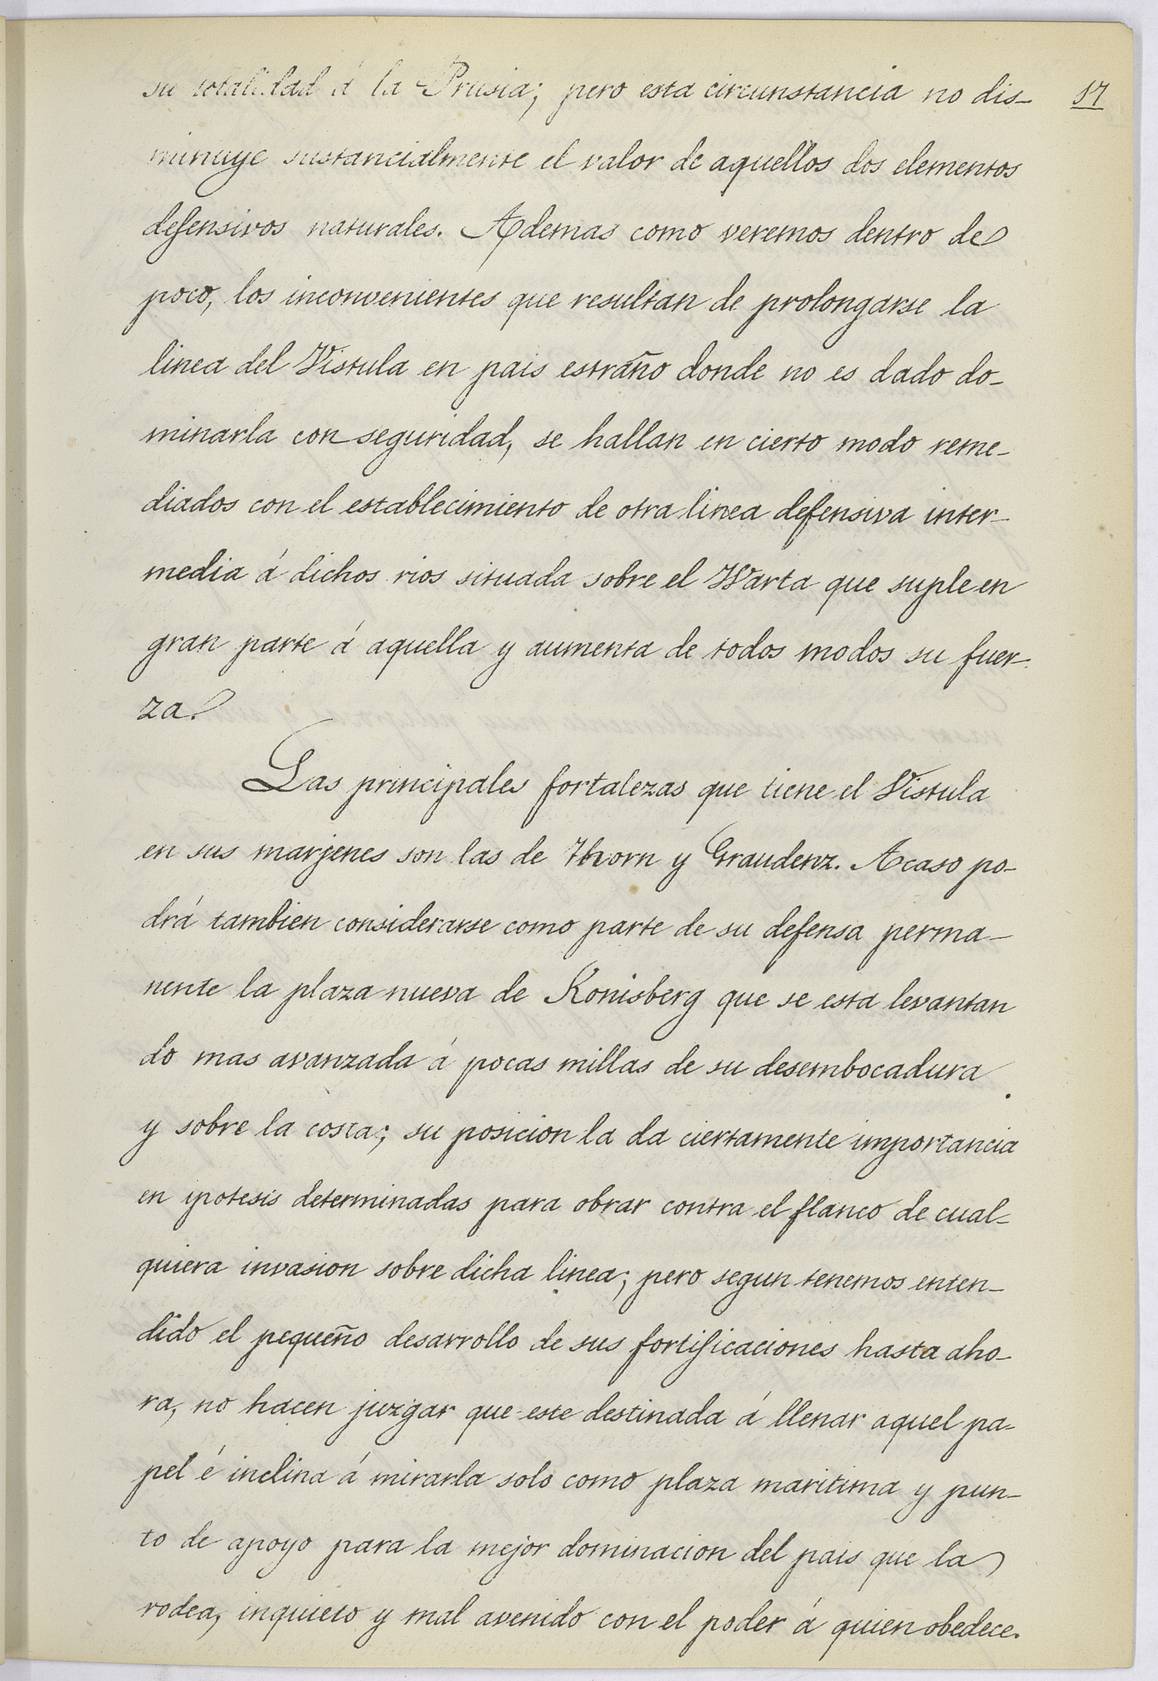 su totalidad á la Prusia; pero esta circunstancia no dis- 17
minuye sustancialmente el valor de aquellos dos elementos
defensivos naturales. Ademas como veremos dentro de
poco, los inconvenientes que resultan de prolongarse la
linea del Vistula en pais estraño donde no es dado do-
minarla con seguridad, se hallan en cierto modo reme-
diados con el establecimiento de otra linea defensiva inter-
media á dichos rios situada sobre el Warta que suple en
gran parte á aquella y aumenta de todos modos su fuer-
za.
Las principales fortalezas que tiene el Vistula
en sus marjenes son las de Thorn y Graudenz. Acaso po-
drá tambien considerarse como parte de su defensa perma-
nente la plaza nueva de Konisberg que se esta levantan
do mas avanzada á pocas millas de su desembocadura
y sobre la costa; su posicion la da ciertamente importancia
en ipotesis determinadas para obrar contra el flanco de cual-
quiera invasion sobre dicha linea; pero segun tenemos enten-
dido el pequeño desarrollo de sus fortificaciones hasta aho-
ra, no hacen juzgar que este destinada á llenar aquel pa-
pel é inclina á mirarla solo como plaza maritima y pun-
to de apoyo para la mejor dominacion del pais que la
rodea, inquieto y mal avenido con el poder á quien obedece.